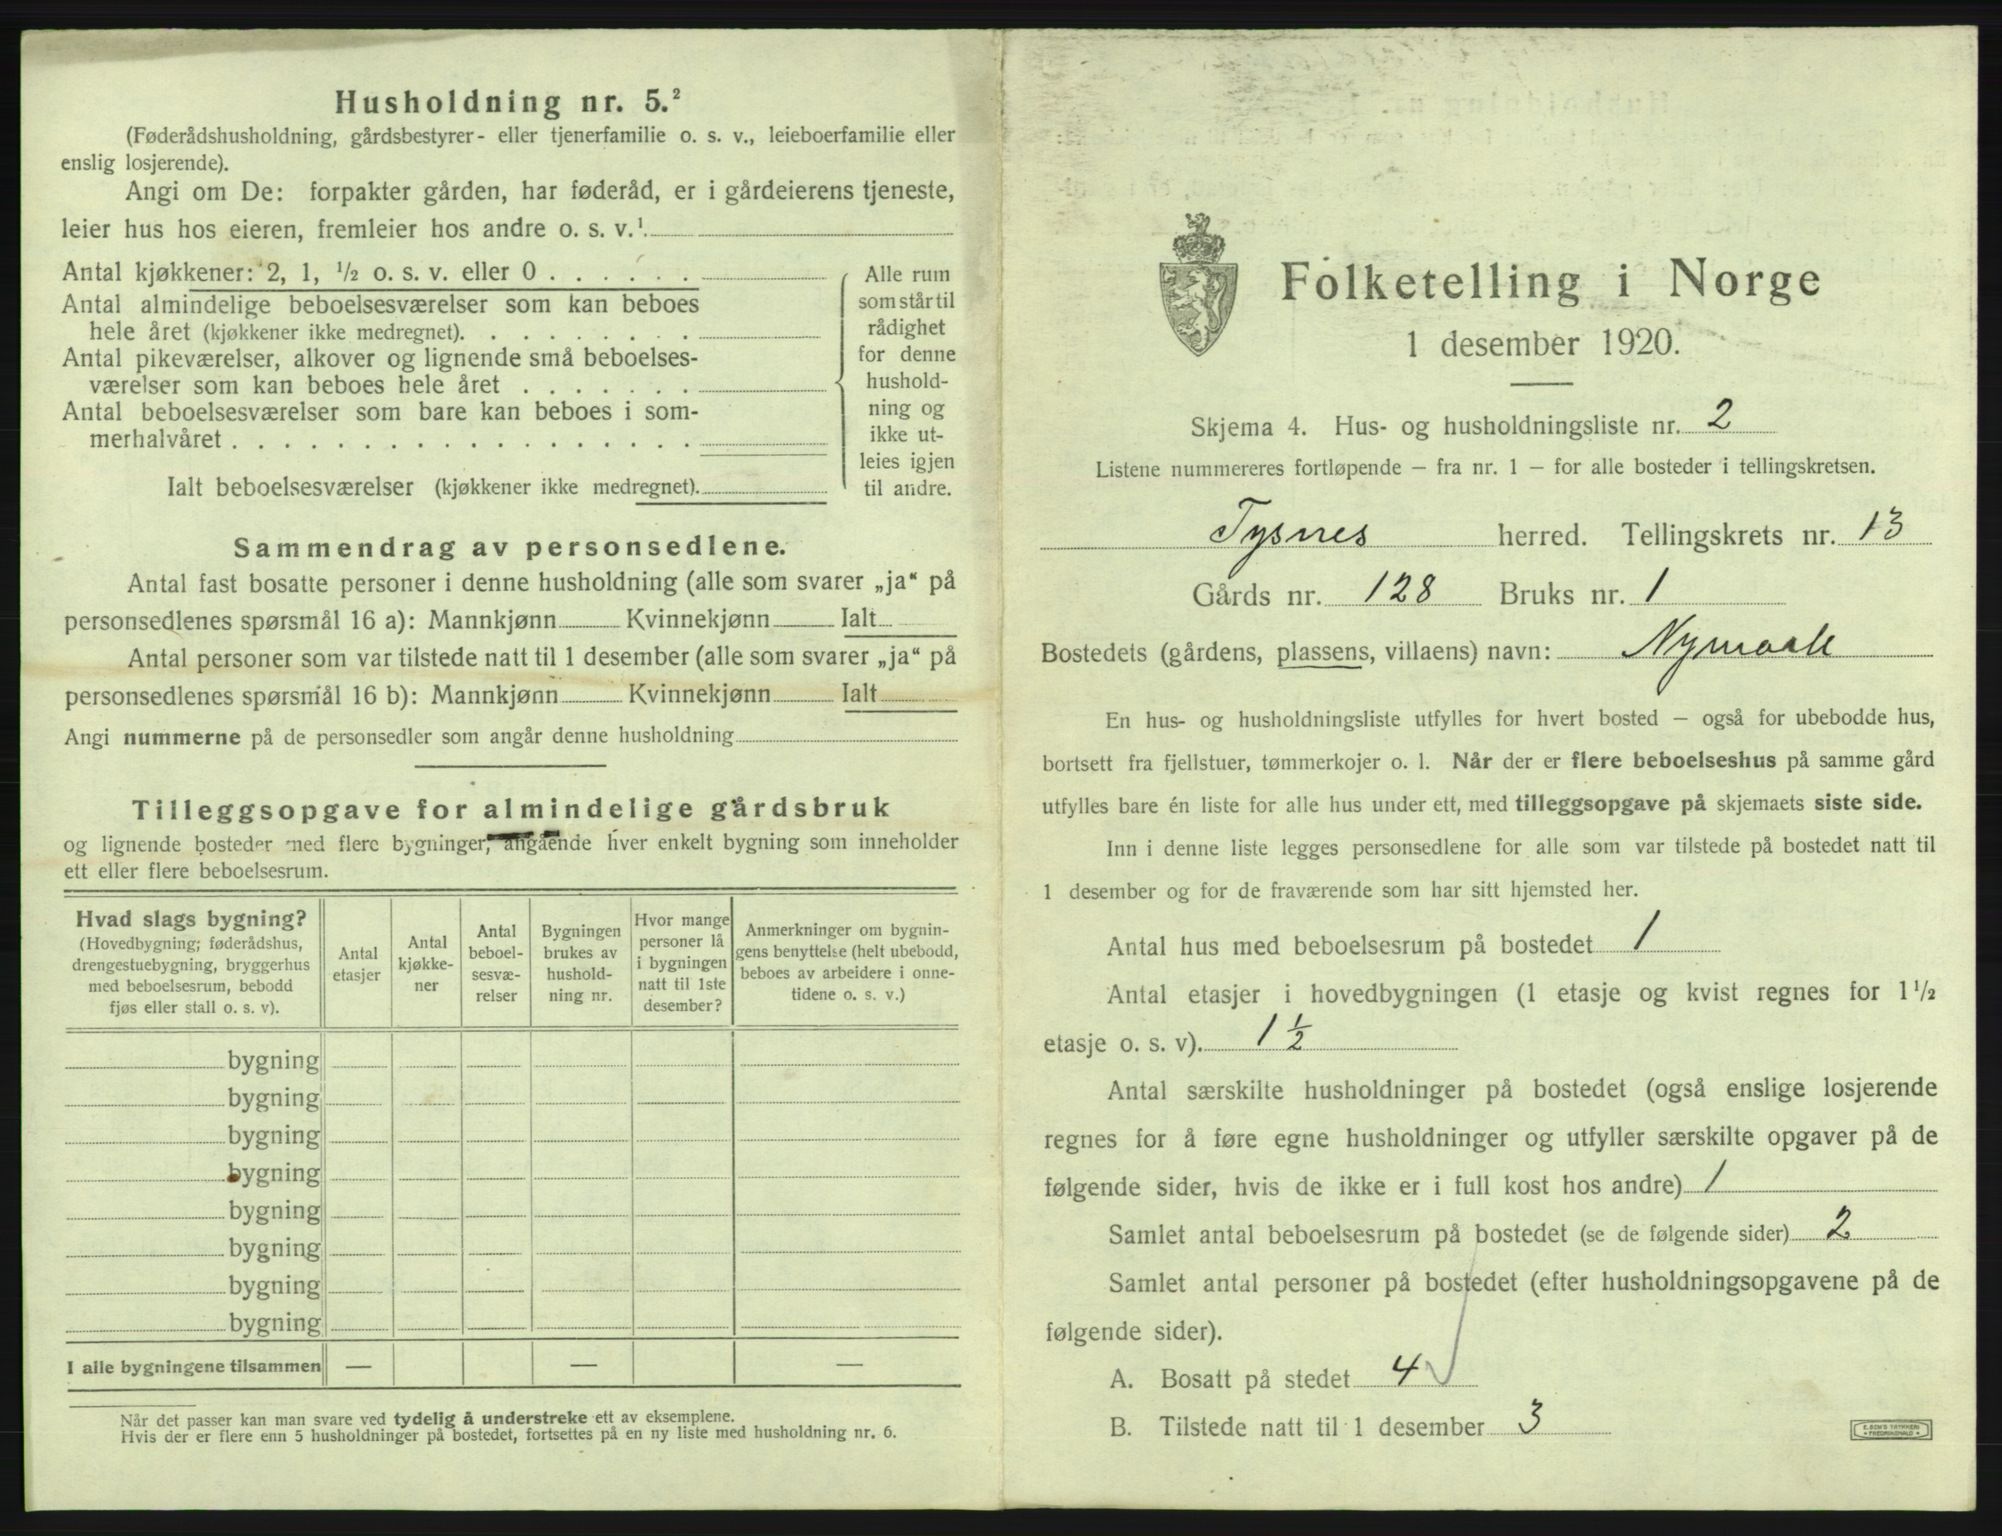 Husholdning nr. 5.²
(Føderådshusholdning, gårdsbestyrer- eller tjenerfamilie o. s. v., leieboerfamilie eller
enslig losjerende).
Angi om De: forpakter gården, har føderåd, er i gårdeierens tjeneste,
leier hus hos eieren, fremleier hos andre o. s. v.¹
Antal kjøkkener: 2, 1, ½ o. s. v. eller 0
Antal almindelige beboelsesværelser som kan beboes
hele året (kjøkkener ikke medregnet).
Antal pikeværelser, alkover og lignende små beboelses-
værelser som kan beboes hele året
Antal beboelsesværelser som bare kan beboes i som-
merhalvåret
Ialt beboelsesværelser (kjøkkener ikke medregnet).
Alle rum
som står til
rådighet
for denne
hushold-
ning og
ikke ut-
leies igjen
til andre.
Sammendrag av personsedlene.
Antal fast bosatte personer i denne husholdning (alle som svarer „ja“ på
personsedlenes spørsmål 16 a): Mannkjønn Kvinnekjønn Ialt
Antal personer som var tilstede natt til 1 desember (alle som svarer „ja“ på
personsedlenes spørsmål 16 b): Mannkjønn Kvinnekjønn Ialt
Angi nummerne på de personsedler som angår denne husholdning
Tilleggsopgave for almindelige gårdsbruk
og lignende bosteder med flere bygninger, angående hver enkelt bygning som inneholder
ett eller flere beboelsesrum.
Hvad slags bygning?
(Hovedbygning; føderådshus,
drengestuebygning, bryggerhus
med beboelsesrum, bebodd
fjøs eller stall o. s. v).
Antal
etasjer
Antal
kjøkke-
ner
Antal
beboel-
sesvæ-
relser
Bygningen
brukes av
hushold-
ning nr.
Hvor mange
personer lå
i bygningen
natt til 1ste
desember?
Anmerkninger om bygnin-
gens benyttelse (helt ubebodd,
beboes av arbeidere i onne-
tidene o. s. v.)
bygning
bygning
bygning
bygning
bygning
bygning
bygning
bygning
I alle bygningene tilsammen — — —
Når det passer kan man svare ved tydelig å understreke ett av eksemplene.
Hvis der er flere enn 5 husholdninger på bostedet, fortsettes på en ny liste med husholdning nr. 6.
Folketelling i Norge
1 desember 1920.
Skjema 4. Hus- og husholdningsliste nr. 2
Listene nummereres fortløpende — fra nr. 1 — for alle bosteder i tellingskretsen.
Tysnes herred. Tellingskrets nr. 13
Gårds nr. 128 Bruks nr. 1
Bostedets (gårdens, plassens, villaens) navn: Nymaale
En hus- og husholdningsliste utfylles for hvert bosted — også for ubebodde hus,
bortsett fra fjellstuer, tømmerkojer o. l. Når der er flere beboelseshus på samme gård
utfylles bare én liste for alle hus under ett, med tilleggsopgave på skjemaets siste side.
Inn i denne liste legges personsedlene for alle som var tilstede på bostedet natt til
1 desember og for de fraværende som har sitt hjemsted her.
Antal hus med beboelsesrum på bostedet 1
Antal etasjer i hovedbygningen (1 etasje og kvist regnes for 1½
etasje o. s. v). 1½
Antal særskilte husholdninger på bostedet (også enslige losjerende
regnes for å føre egne husholdninger og utfyller særskilte opgaver på de
følgende sider, hvis de ikke er i full kost hos andre) 1
Samlet antal beboelsesrum på bostedet (se de følgende sider) 2
Samlet antal personer på bostedet (efter husholdningsopgavene på de
følgende sider).
A. Bosatt på stedet 4 √
B. Tilstede natt til 1 desember 3